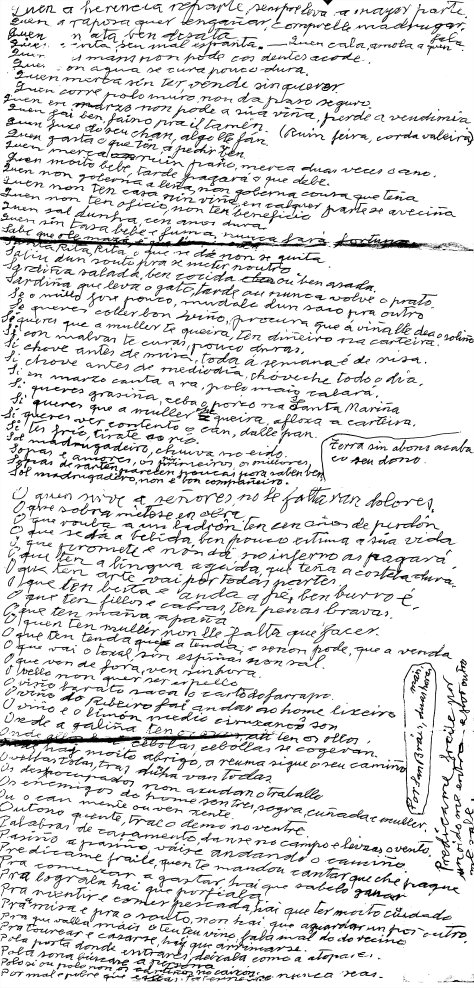 Quen a herencia reparte, sempre leva a mayor parte
Quen a raposa quer engañar, compre lle madrugar.
Quen mata ben desata
Quen canta seu mal espanta. — Quen cala, amola a quen fala.
Quen mans non pode cos dentes acode.
Quen con agua se cura pouco dura.
Quen merca sin ter, vende sin querer.
Quen corre polo muro non da paso seguro.
Quen en marzo non pode a sua viña, perde a vendimia
Quen fai ben, faino pra il tamén
Quen fuxe do seu chan, algo lle fan (Ruin feira, corda valeira)
Quen gasta o que ten a pedir ven
Quen merca ruin paño, merca duas veces o ano.
Quen moito bebe, tarde pagará o que debe.
Quen non goberna a testa, non goberna cousa que teña
Quen non ten casa nin viño, en calquer parte se aveciña
Quen non ten oficio non ten beneficio
Quen sal dunha, cen anos dura
Quen sin tasa bebe e fuma, nunca fará fortuna
Sabe que
Santa Rita, Rita, o que se da non se quita.
Saliu dun souto pra se meter noutro
Sardiña salada, ben cocida ou ben asada.
Sardiña que leva o gato, tarde ou nunca volve o prato
Se o millo fose pouco, mudalo dun saco pra outro
Se queres coller bon viño, procura que á viña lle dea o soliño
Se queres que a muller te queira, ten diñeiro na carteira.
Si con malvas te curas, pouco duras.
Si chove antes de misa, toda a semana é de risa.
Si chove antes de mediodía, chóveche todo o día.
Si en marzo canta a ra, polo maio rabiará.
Si queres grasiña, ceba o porco na Santa Mariña
Si queres que a muller te queira, afloxa a carteira.
Si queres ver contento o can, dalle pan.
Si tes frio, tirate ao rio.
Sol madrugadeiro, chuvia no eido.
Sopas e amores, os primeiros, os millores,
Sopas de sarten parecen poucas pero saben ben
Sol madrugadeiro, non é bon compañeiro.
Terra sin abono acaba co seu dono.
O quen sirve a señores, no le faltarán dolores.
O que sobra métese en obra
O que rouba a un ladrón ten cen años de perdón
O que se dá a bebida, ben pouco estima a sua vida
O que promete e non da no inferno as pagará.
O que ten a lingua aguda, que teña a costela dura.
O que ten arte vai por todas partes.
O que ten besta e anda a pe, ben burro é.
O que ten fillos e cabras, ten penas bravas.
O que ten maña, apaña
O quen ten muller non lle falta que facer.
O que ten tenda que a tenda, e se non pode, que a venda
O que vai o toxal, sin espiñas non sal.
O que ven de fora, ven sin hora.
O vello non quer ser o pello
O viño barato saca o carto do farrapo.
O viño do Ribeiro fai andar ao home lixeiro
O viño e o limón medio ciruxanos son
Onde a galiña ten os ovos, alí ten os ollos.
Onde cebolas, cebollas se cogerán.
hai moito abrigo, a reuma sigue o seu camiño
Ovellas todas, tras dunha van todas
Os despreocupados non axudan o traballo
Os enemigos do home son tres, sogra, cuñada e muller.
Ou o can mente ou ven xente.
Outono quente, trae o demo no ventre.
Palabras de casamento, danse no campo e lévaas o vento.
Pasiño a pasiño, vaise andando o camiño
Predícame fraile, quen te mandou cantar que che pague
Pra comenzar a gastar, hai que sabelo ganar
Pra lograla hai que porfiala
Pra mentir e comer pescada, hai que ter moito cuidado
Pra misa e pra o souto, non hai que aguardar un por outro.
Pra que valla mais o teu viño, fala mal do do veciño
Pra tourear e casarse, hai que arrimarse.
Pola porta donde entrares, déixala como a topares.
Pola sona buscan a persona
Polo si ou polo non
Por mal e pobre que nunca veas.
Por San Brais, duas horas mais
Predícame fraile, por un oido me entra e por outro me sale.